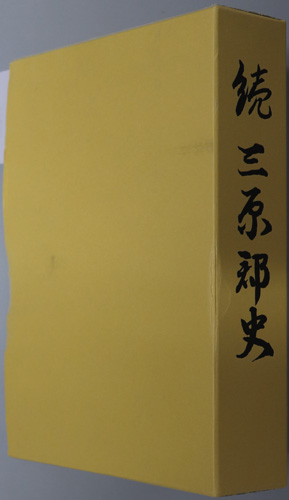 続 三原郡史